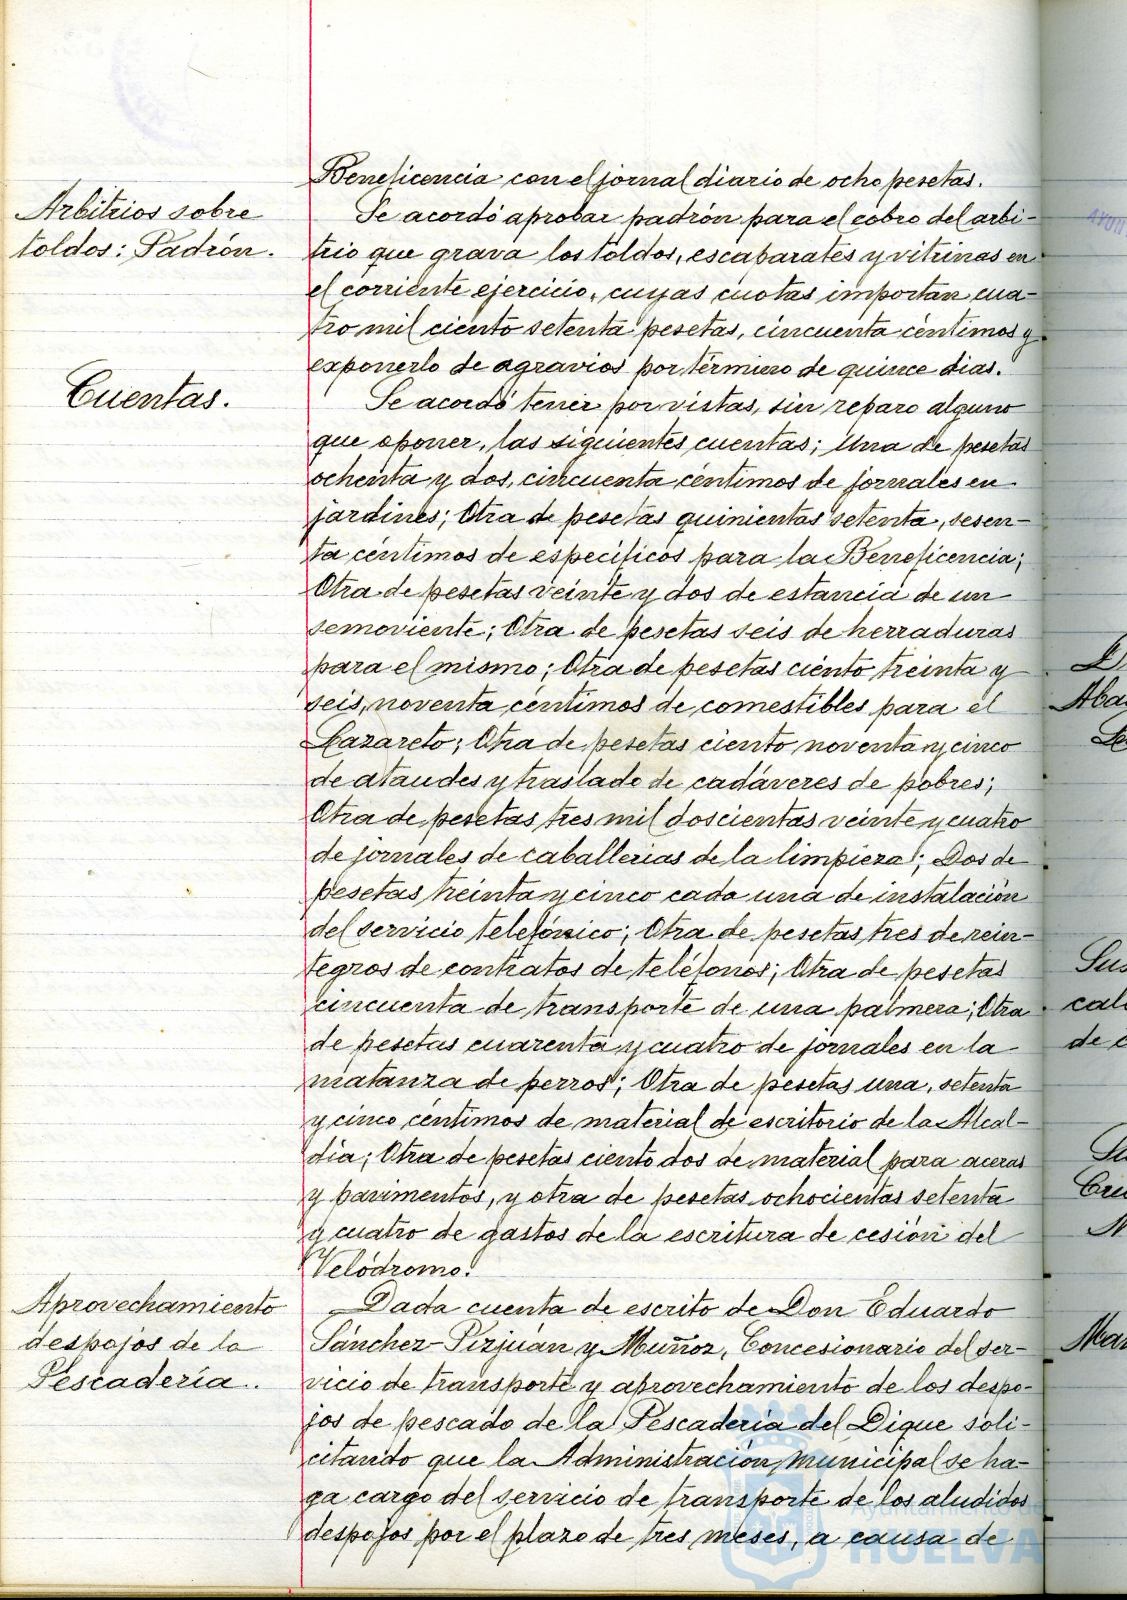 Beneficencia con el jornal diario de ocho pesetas.
Arbitrios sobre
toldos: Padrón.
Se acordó aprobar padrón para el cobro del arbi-
trio que grava los toldos, escaparates y vitrinas en
el corriente ejercicio, cuyas cuotas importan cua-
tro mil ciento setenta pesetas, cincuenta céntimos y
exponerlo de agravios por término de quince dias.
Cuentas.
Se acordó tener por vistas, sin reparo alguno
que oponer, las siguientes cuentas; Una de pesetas
ochenta y dos, cincuenta céntimos de jornales en
jardines; Otra de pesetas quinientas setenta, sesen-
ta céntimos de específicos para la Beneficencia;
Otra de pesetas veinte y dos de estancia de un
semoviente; Otra de pesetas seis de herraduras
para el mismo; Otra de pesetas ciento treinta y
seis, noventa céntimos de comestibles para el
Lazareto; Otra de pesetas ciento noventa y cinco
de ataudes y traslado de cadáveres de pobres;
Otra de pesetas tres mil doscientas veinte y cuatro
de jornales de caballerias de la limpieza; Dos de
pesetas treinta y cinco cada una de instalación
del servicio telefónico; Otra de pesetas tres de rein-
tegros de contratos de teléfonos; Otra de pesetas
cincuenta de transporte de una palmera; Otra
de pesetas cuarenta y cuatro de jornales en la
matanza de perros; Otra de pesetas una, setenta
y cinco céntimos de material de escritorio de la Alcal-
dia; Otra de pesetas ciento dos de material para aceras
y pavimentos, y otra de pesetas ochocientas setenta
y cuatro de gastos de la escritura de cesión del
Velódromo.
Aprovechamiento
despojos de la
Pescadería.
Dada cuenta de escrito de Don Eduardo
Sánchez-Pizjuán y Muñoz, Concesionario del ser-
vicio de transporte y aprovechamiento de los despo-
jos de pescado de la Pescadería del Dique soli-
citando que la Administración Municipal se ha-
ga cargo del servicio de transporte de los aludidos
despojos por el plazo de tres meses, a causa de
Ayuntamiento de
HUELVA